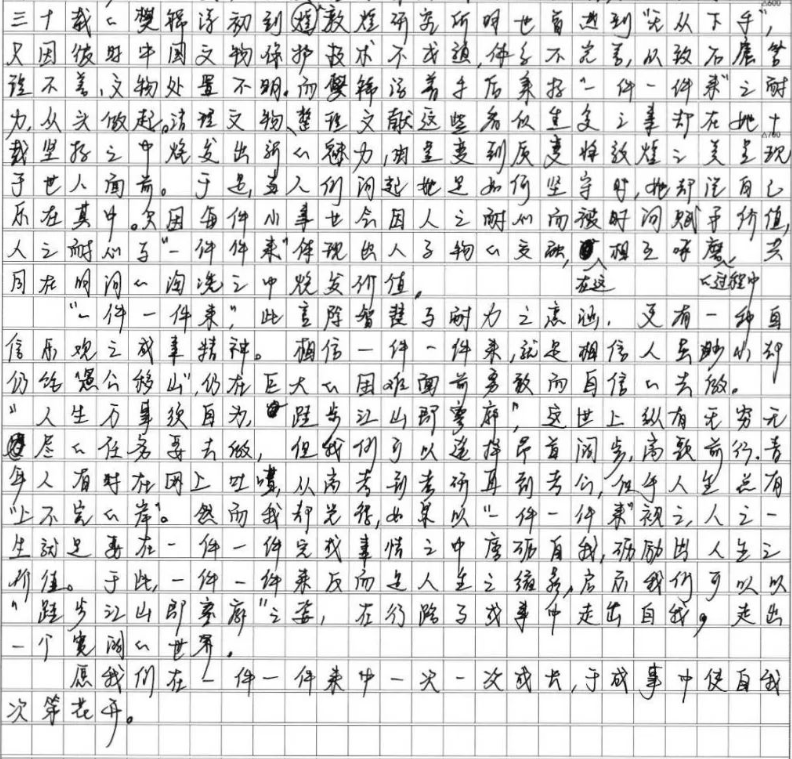 三十载的樊锦诗初到敦煌研究所时也曾遇到“无从下手”,
只因彼时中国文物保护技术不成熟,体系不完善,以致石窟管
理不善、文物处置不明。而樊锦诗着手后秉持“一件一件来”之耐
力,从头做起。清理文物、整理文献这些看似重复之事却在她十
载坚持之中焕发出新的魅力,由量变到质变将敦煌之美呈现
于世人面前。于是,当人们问起她是如何坚守时,她却说自己
乐在其中。只因每件小事也会因人之耐心而被时间赋予价值,
人之耐心与“一件一件来”体现出人与物的交融,在这相互砥磨的过程中共
同在时间的淘洗之中焕发价值。
“一件一件来”,此言除智慧与耐力之底涵,更有一种自
信乐观之成事精神。相信一件一件来,就是相信人虽渺小却
仍给“愚公移山”,仍在巨大的困难面前勇敢而自信的去做。
“人生万事须自为,跬步江山即寥廓”,这世上纵有无穷无
尽的任务要去做,但我们可以选择昂首阔步,高歌前行。青
年人有时在网上吐嘈,从高考到考研再到考公,似乎人生总有
“上不完的岸”。然而我却觉得,如果以“一件一件来”视之,人之一
生就是要在一件一件完成事情之中磨砺自我,砺励出人生之
价值。于此,一件一件来反而是人生之缩影,启示我们可以以
“跬步江山即寥廓”之姿,在行路与成事中走出自我,走出
一个宽阔的世界。
愿我们在一件一件来中一次一次成长,于成事中使自我
次第花开。